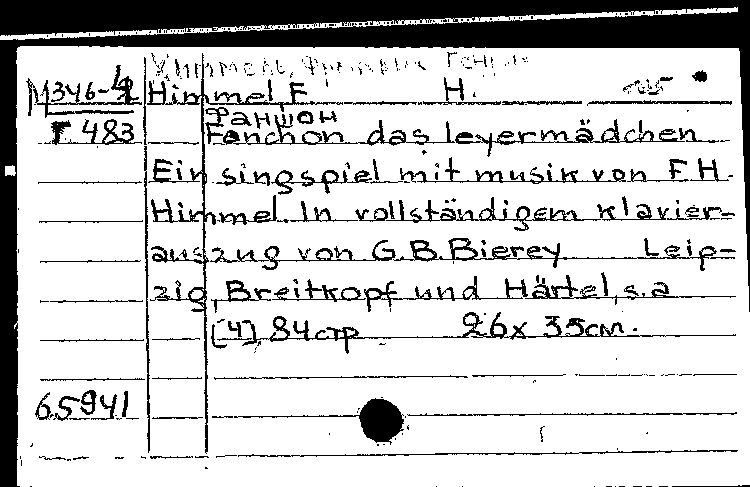 Химмель, Фридрих Генрих
М346-4 Himmel F. H.
Фаншон
Г 483 Fanchon das leyermädchen
Ein singspiel mit musik von F.H.
Himmel. In vollständigem klavier-
auszug von G.B.Bierey Leip-
zig, Breitkopf und Härtel, s.a
[4], 84 стр 26 x 35см.
65941